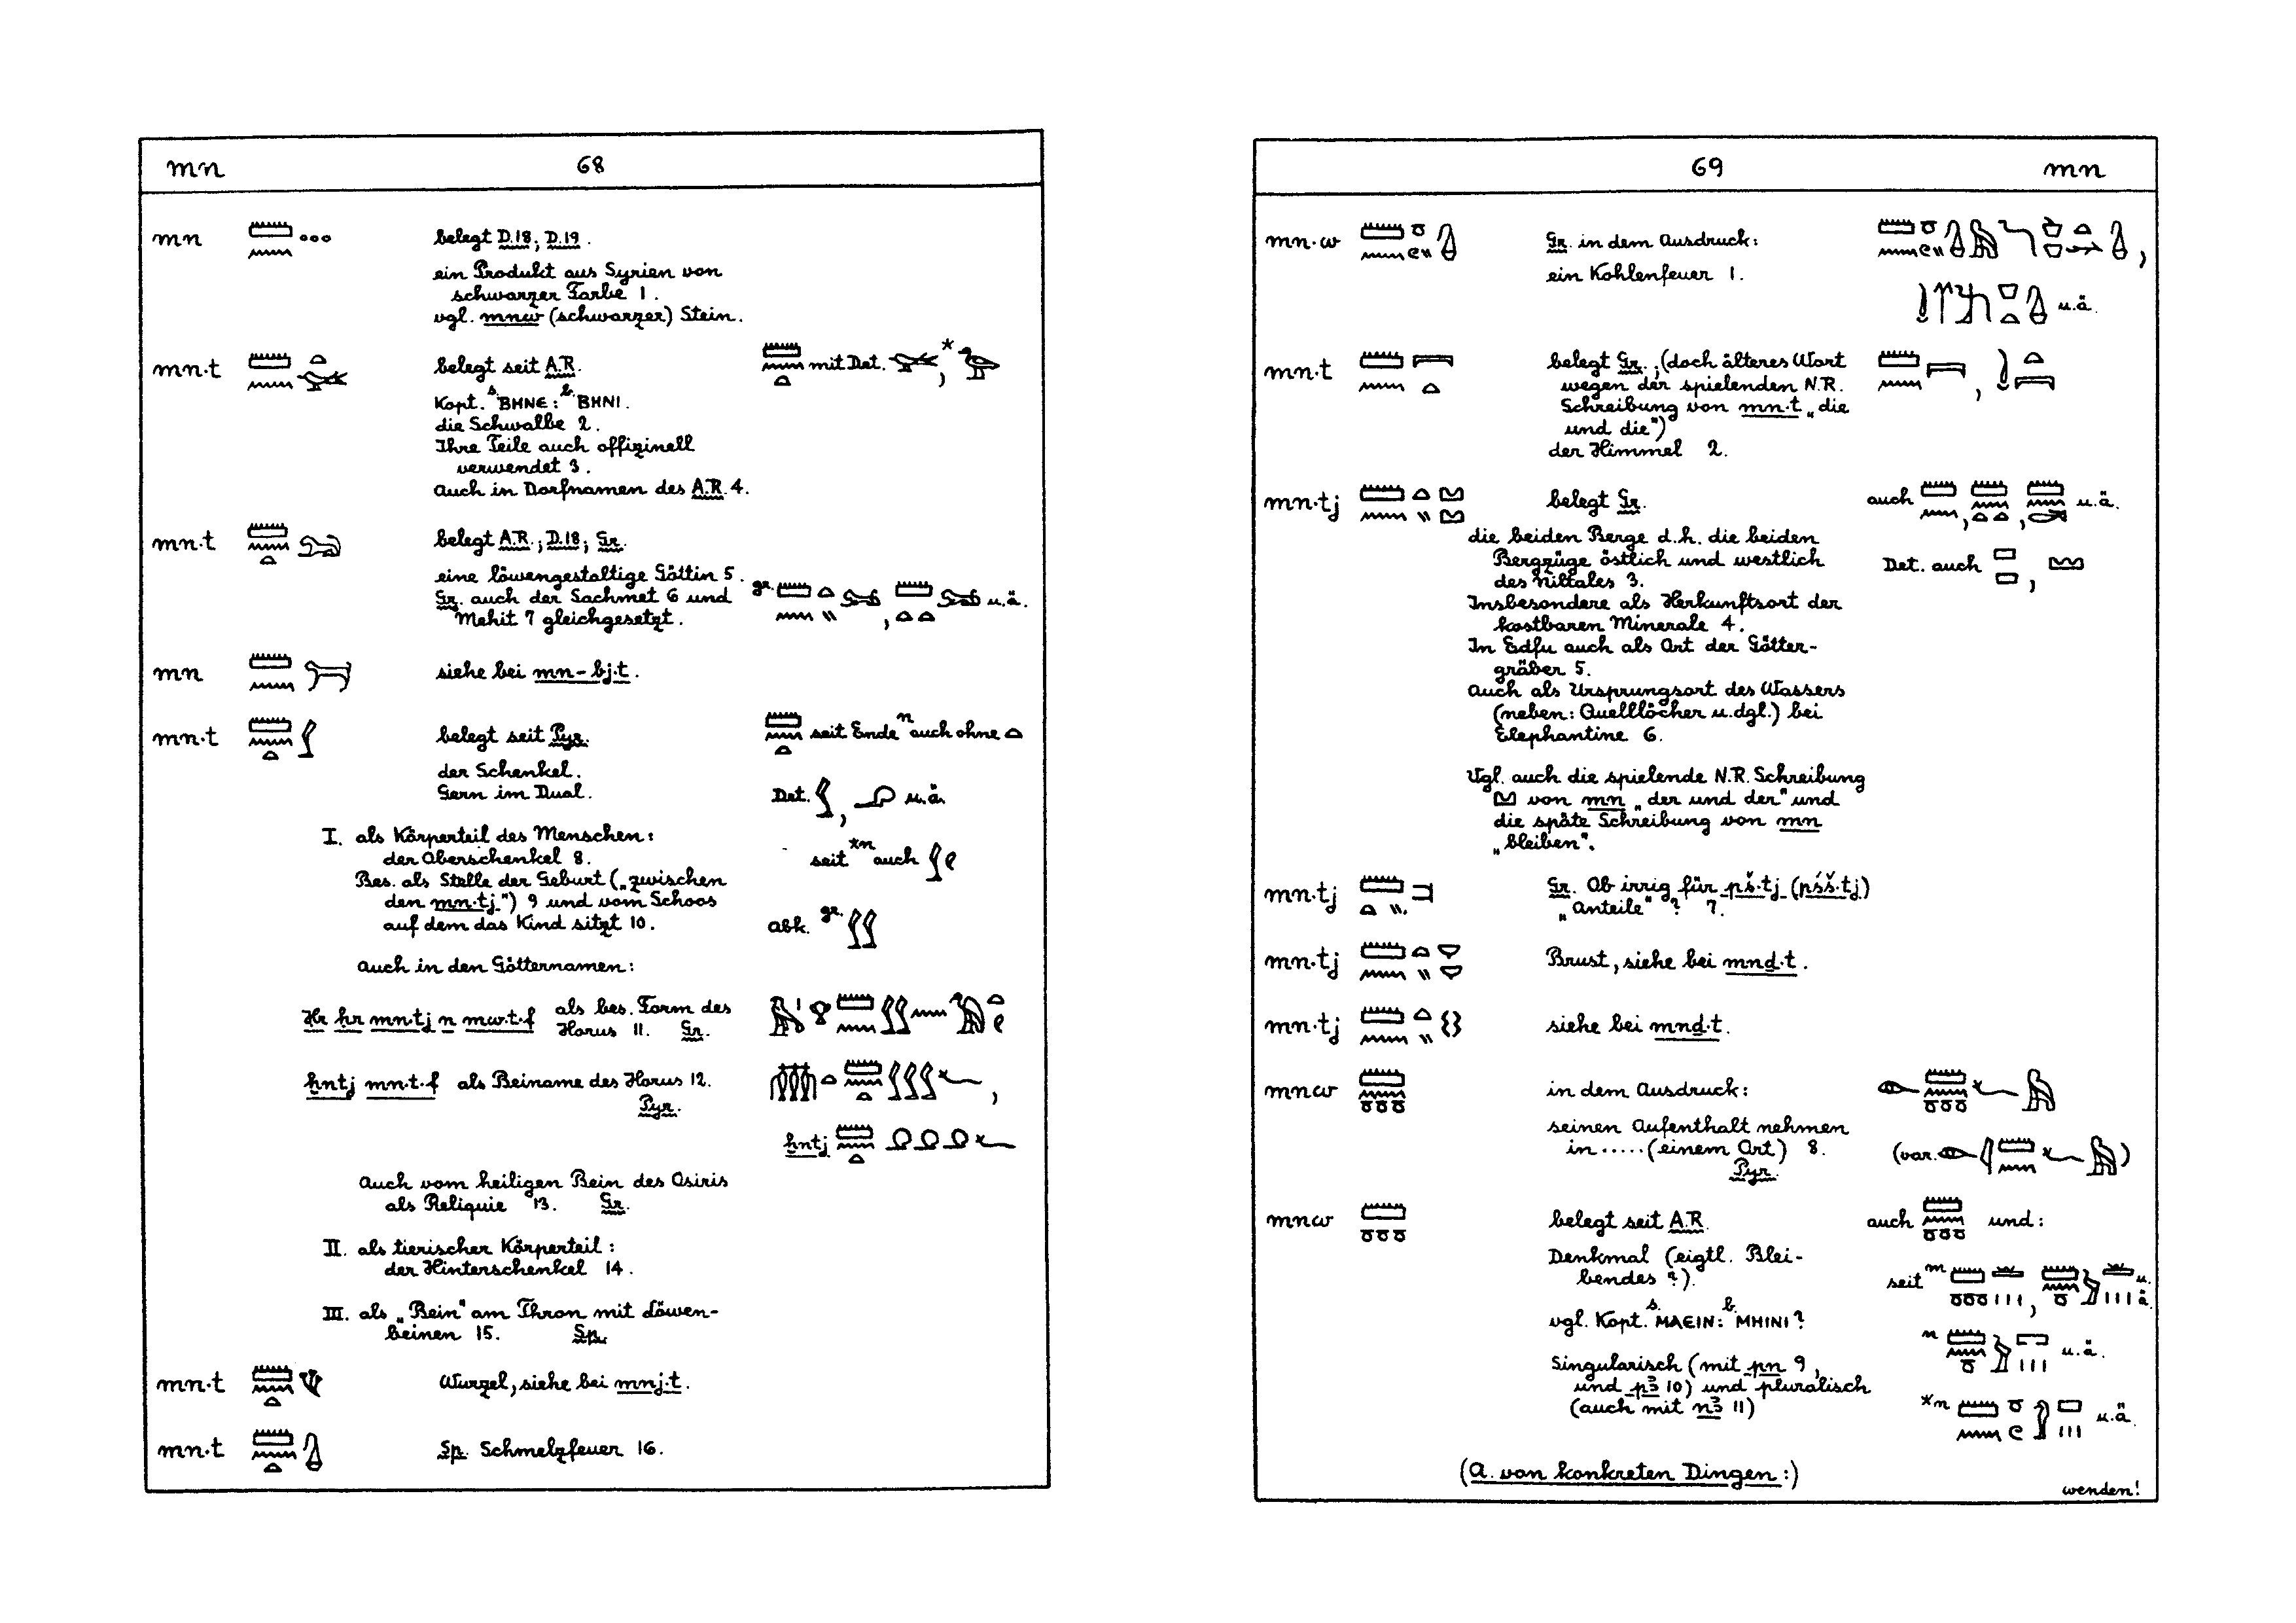 mn 68
mn
belegt D.18; D.19.
ein Produkt aus Syrien von
schwarzer Farbe 1.
vgl. mnw (schwarzer) Stein.
mn·t
belegt seit A.R.
mit Det. , *
Kopt. s. ⲃⲏⲛⲉ: b. ⲃⲏⲛⲓ.
die Schwalbe 2.
Ihre Teile auch offizinell
verwendet 3.
Auch in Dorfnamen des A.R. 4.
mn·t
belegt A.R.; D.18; Gr.
eine löwengestaltige Göttin 5.
Gr. auch der Sachmet 6 und
gr. , u.ä.
Mehit 7 gleichgesetzt.
mn
siehe bei mn-bj·t.
mn·t
belegt seit Pyr.
seit Ende n auch ohne
der Schenkel.
Gern im Dual.
Det. , u.ä.
I. als Körperteil des Menschen:
der Oberschenkel 8.
seit *n auch
Bes. als Stelle der Geburt („zwischen
den mn·tj") 9 und vom Schoos
auf dem das Kind sitzt 10.
Abk. gr.
Auch in den Götternamen:
Ḥr ḥr mn·tj n mw·t·f als bes. Form des
Horus 11. Gr.
ḫntj mn·t·f als Beiname des Horus 12.
Pyr.
ḫntj
Auch vom heiligen Bein des Osiris
als Reliquie 13. Gr.
II. als tierischer Körperteil:
der Hinterschenkel 14.
III. als „Bein" am Thron mit Löwen-
beinen 15. Sp.
mn·t
Wurzel, siehe bei mnj·t.
mn·t
Sp. Schmelzfeuer 16.
69 mn
mn·w
Gr. in dem Ausdruck:
ein Kohlenfeuer 1.
u.ä.
mn·t
belegt Gr.; (doch älteres Wort
wegen der spielenden N.R.
Schreibung von mn·t „die
und die")
der Himmel 2.
mn·tj
belegt Gr.
auch , , u.ä.
die beiden Berge d.h. die beiden
Bergzüge östlich und westlich
des Niltales 3.
Det. auch ,
Insbesondere als Herkunftsort der
kostbaren Minerale 4.
In Edfu auch als Ort der Götter-
gräber 5.
Auch als Ursprungsort des Wassers
(neben: Quelllöcher u.dgl.) bei
Elephantine 6.
Vgl. auch die spielende N.R. Schreibung
von mn „der und der" und
die späte Schreibung von mn
„bleiben".
mn·tj
Gr. Ob irrig für pš·tj (pśš·tj)
„Anteile" ? 7.
mn·tj
Brust, siehe bei mnḏ·t.
mn·tj
siehe bei mnḏ·t.
mnw
in dem Ausdruck:
seinen Aufenthalt nehmen
in ..... (einem Ort) 8.
Pyr.
(var. )
mnw
belegt seit A.R.
auch und:
Denkmal (eigtl. Blei-
bendes ?).
seit m , u.ä.
vgl. Kopt. s. ⲙⲁⲉⲓⲛ: b. ⲙⲏⲓⲛⲓ?
n u.ä.
Singularisch (mit pn 9,
und pꜣ 10) und pluralisch
(auch mit nꜣ 11)
*n u.ä.
(A. von konkreten Dingen:)
wenden!